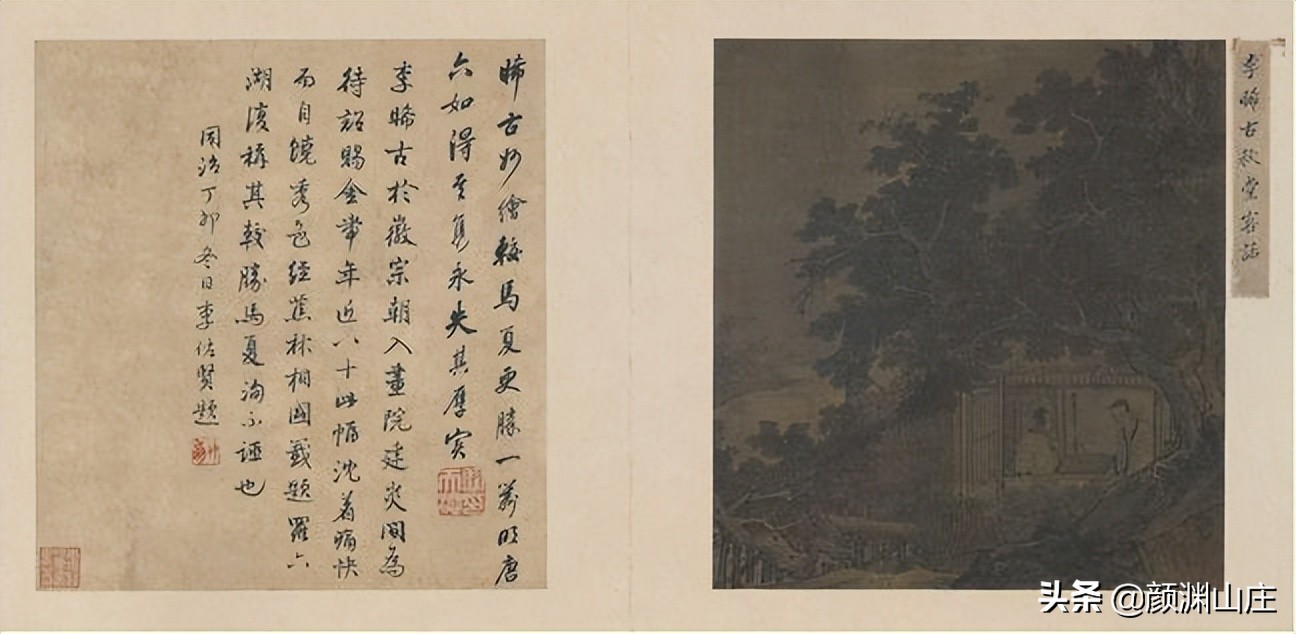 李晞古秋堂客話
晞古妙繪較馬夏更勝一籌明唐
六如得其雋永失其厚實
李晞古於徽宗朝入畫院建炎間為
待詔賜金帶年近八十此幅沈着痛快
而自饒秀色經蕉林相國籤題羅六
湖復稱其較勝馬夏洵不誣也
同治丁卯冬日李佐賢題
头条 @颜渊山庄